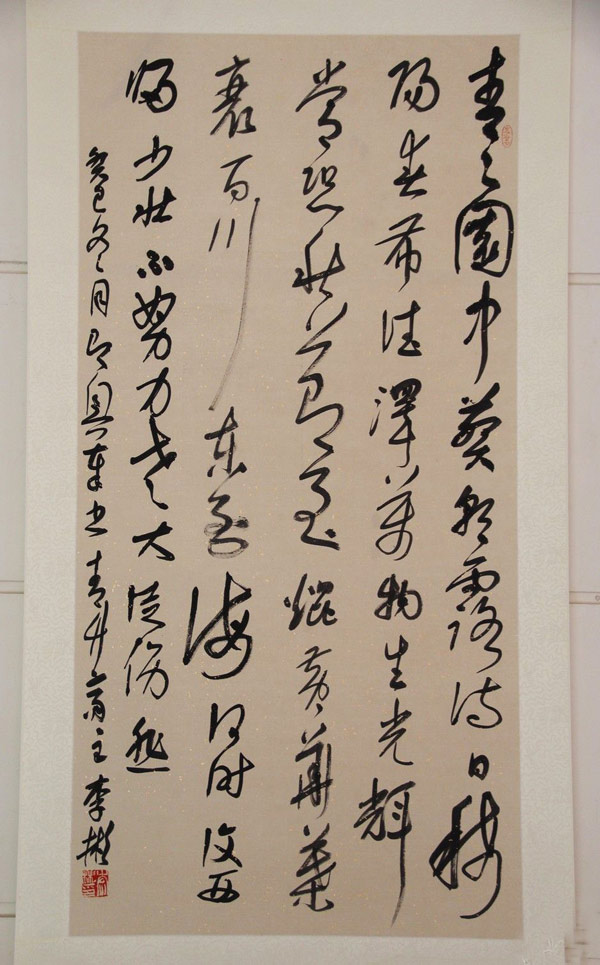 青々園中葵朝露待日晞
陽春布德澤萬物生光輝
常恐秋節至焜黃華葉
衰百川东到海何时復西
歸少壯不努力老大徒傷悲
癸巳冬月即興草书青竹斋主李彬